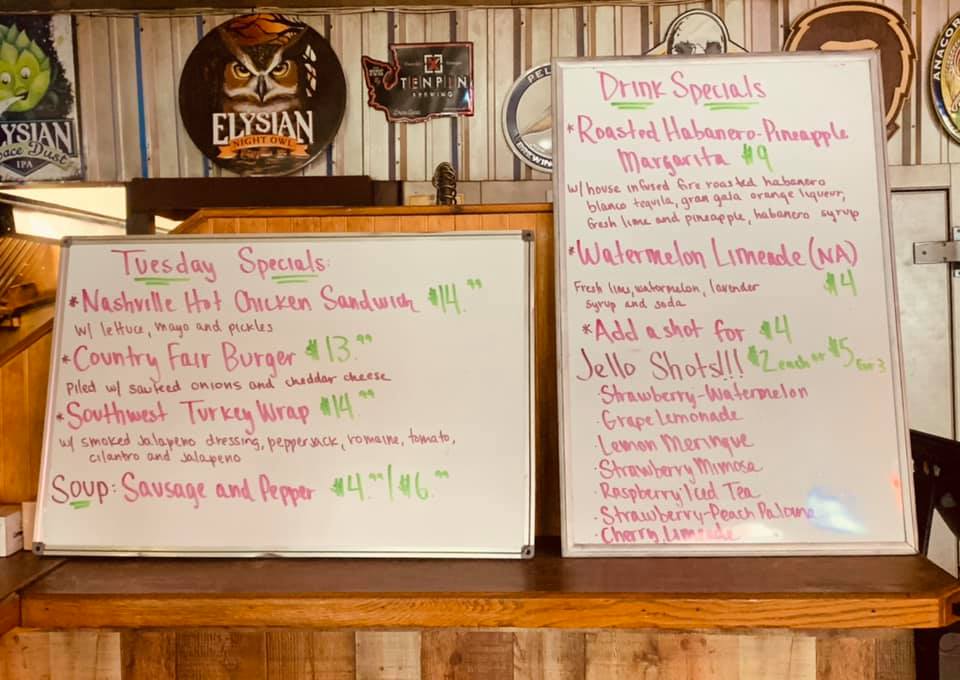 YSIAN
Space Dust
IPA
ELYSIAN
NIGHT OWL
TENPIN
BREWING
PEL
BREWING
ANACOR
Tuesday Specials:
*Nashville Hot Chicken Sandwich $14.99
w/ lettuce, mayo and pickles
*Country Fair Burger $13.99
Piled w/ sauteed onions and cheddar cheese
*Southwest Turkey Wrap $14.99
w/ smoked jalapeno dressing, pepperjack, romaine, tomato,
cilantro and jalapeno
Soup: Sausage and Pepper $4.99/$6.99
Drink Specials
*Roasted Habanero-Pineapple
Margarita $9
w/ house infused fire roasted habanero
blanco tequila, gran gala orange liqueur,
fresh lime and pineapple, habanero syrup
*Watermelon Limeade (NA)
$4
Fresh lime, watermelon, lavender
syrup and soda
*Add a shot for $4
Jello Shots!!! $2 each or $5 for 3
·Strawberry-Watermelon
·Grape Lemonade
·Lemon Meringue
·Strawberry Mimosa
·Raspberry Iced Tea
·Strawberry-Peach Paloma
·Cherry Limeade